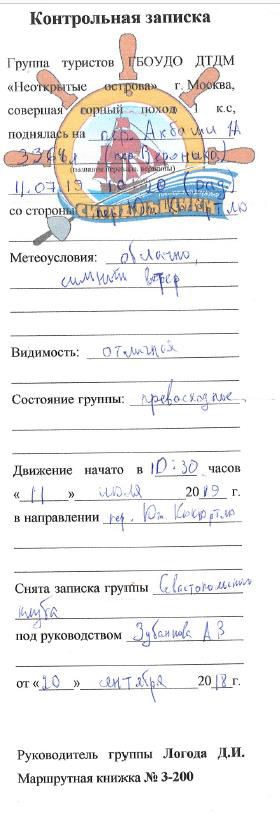 Контрольная записка
Группа туристов ГБОУДО ДТДМ
«Неоткрытые острова» г. Москва,
совершая горный поход 1 к.с,
поднялась на пер. Акбаши Н
3368м (пер. Вероника)
(название перевала, вершины)
11.07.19 10:20 (рад)
со стороны пер. Юж. Кыкыртлю
Метеоусловия: облачно,
сильный ветер
Видимость: отличная
Состояние группы: превосходное
Движение начато в 10:30 часов
«11» июля 2019 г.
в направлении пер. Юж. Кыкыртлю
Снята записка группы Севастопольского
клуба
под руководством А В
от «20» сентября 2018 г.
Руководитель группы Логода Д.И.
Маршрутная книжка № 3-200